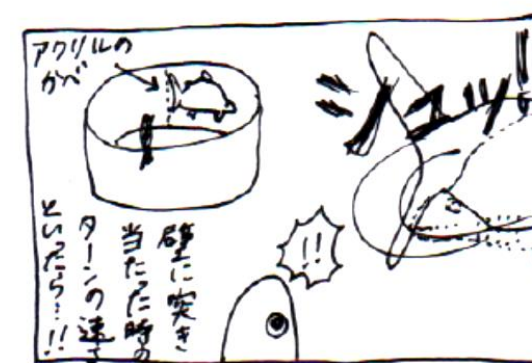 アクリルの
かべ
ハュッ!
!!
壁に突き
当たった時の
ターンの速さ
といったら…!!